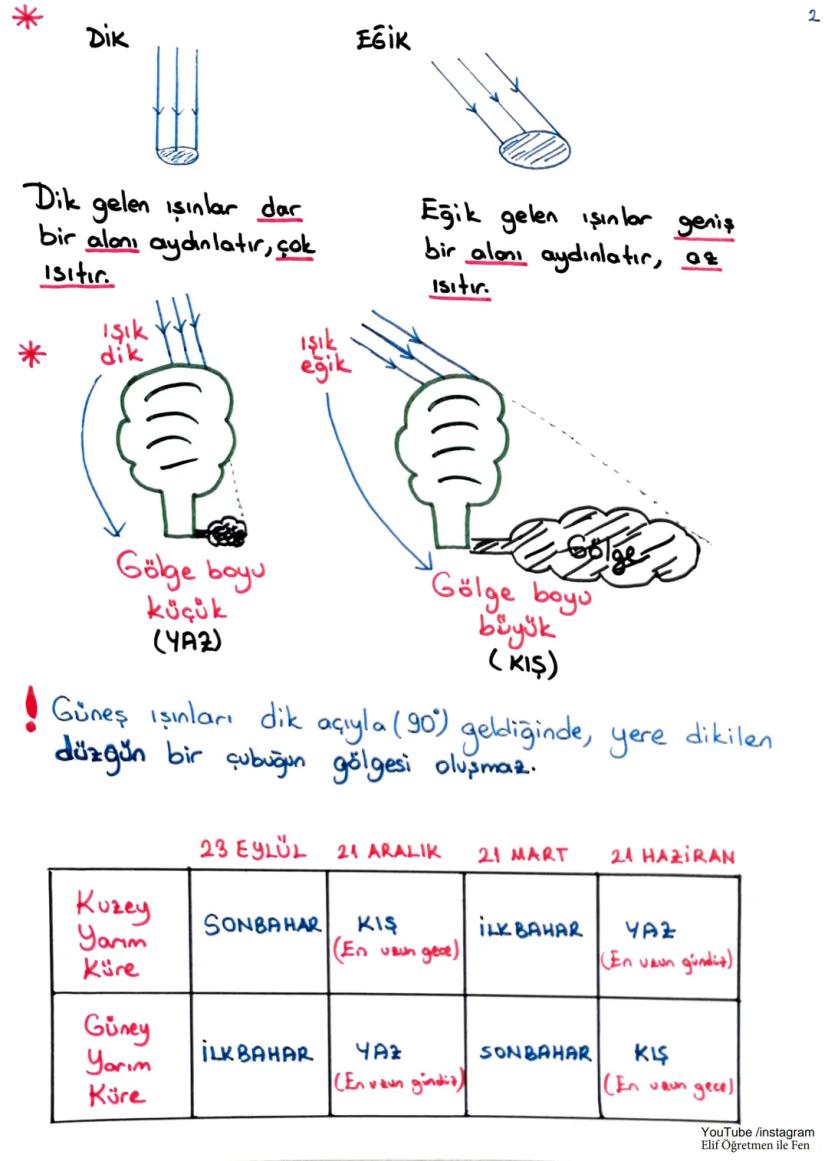 2
DİK
EĞİK
Dik gelen ışınlar dar
bir alanı aydınlatır, çok
ısıtır.
Eğik gelen ışınlar geniş
bir alanı aydınlatır, az
ısıtır.
ışık
dik
ışık
eğik
Gölge
Gölge boyu
küçük
(YAZ)
Gölge boyu
büyük
(KIŞ)
! Güneş ışınları dik açıyla (90°) geldiğinde, yere dikilen
düzgün bir çubuğun gölgesi oluşmaz.
23 EYLÜL 21 ARALIK 21 MART 21 HAZİRAN
Kuzey
Yarım
Küre
SONBAHAR
KIŞ
(En uzun gece)
İLKBAHAR
YAZ
(En uzun gündüz)
Güney
Yarım
Küre
İLKBAHAR
YAZ
(En uzun gündüz)
SONBAHAR
KIŞ
(En uzun gece)
YouTube /instagram
Elif Öğretmen ile Fen